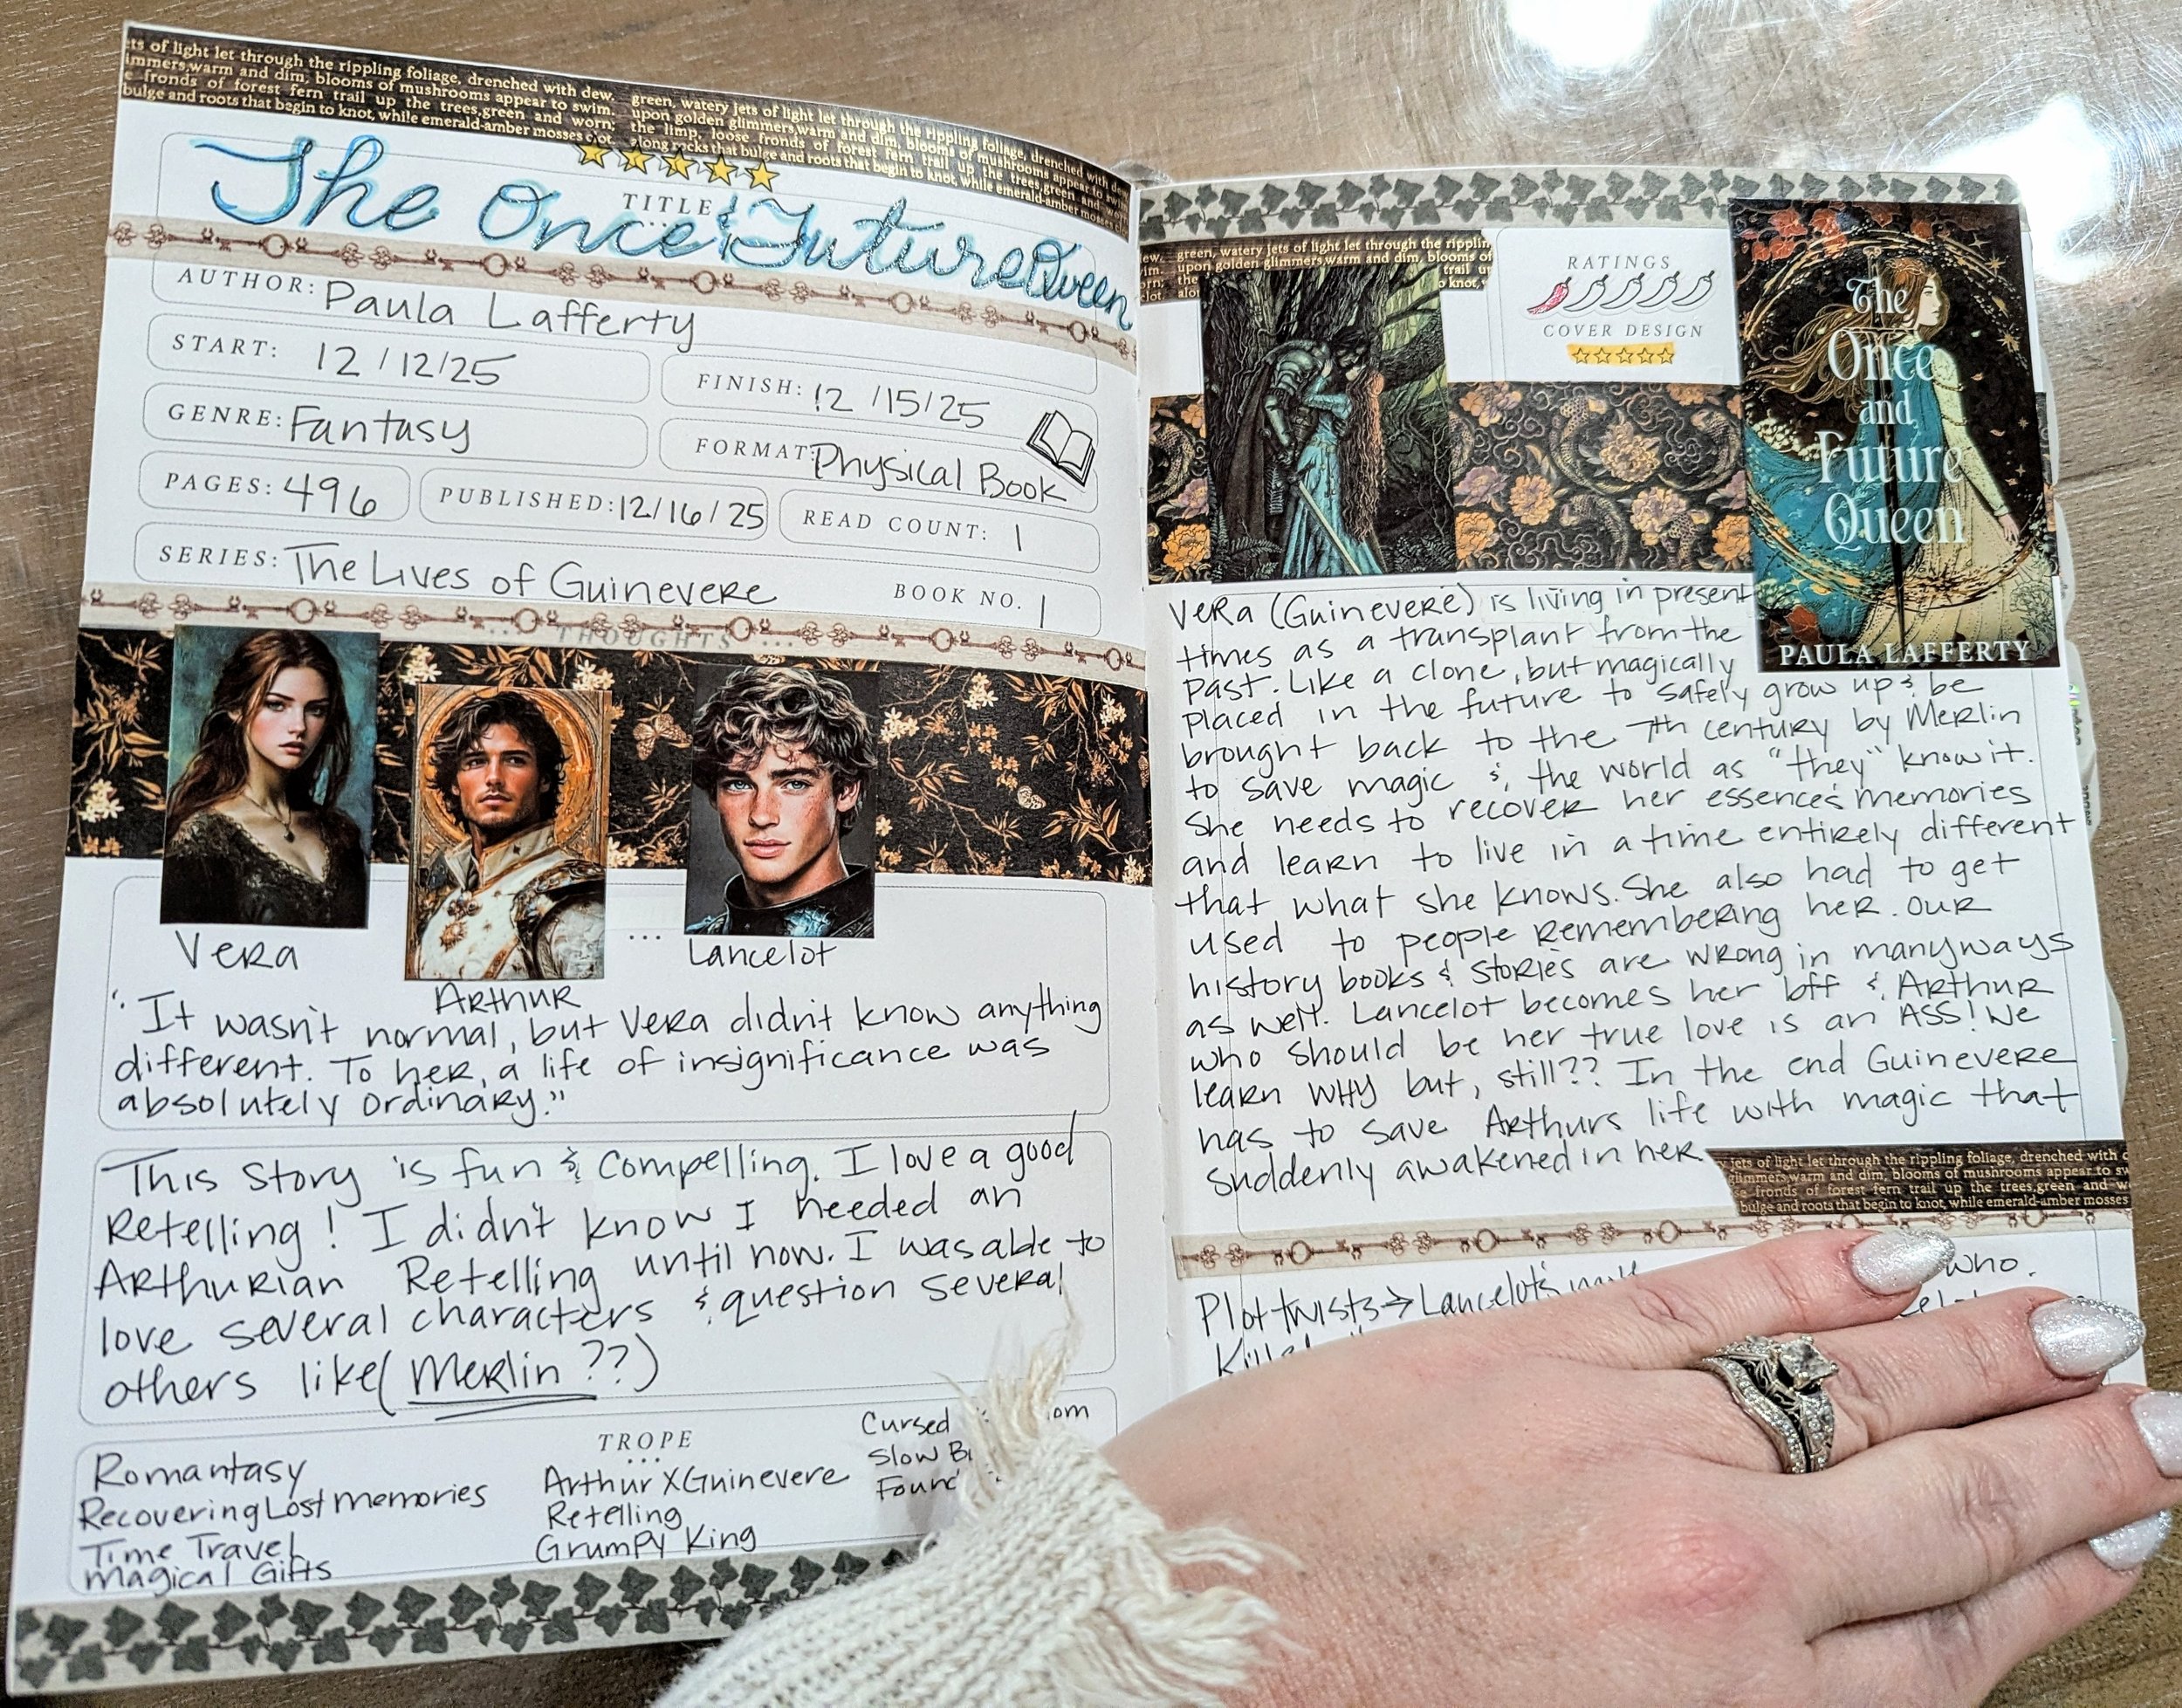 ts of light let through the rippling foliage, drenched with dew.
immers,warm and dim, blooms of mushrooms appear to swim.
e fronds of forest fern trail up the trees,green and worn;
bulge and roots that begin to knot, while emerald-amber mosses clot.
green, watery jets of light let through the rippling foliage, drenched with dew
upon golden glimmers,warm and dim, blooms of mushrooms appear
the limp, loose fronds of forest fern trail up the trees,green and
along rocks that bulge and roots that begin to knot, while emerald-amber mosses
TITLE
The Once & Future Queen
AUTHOR: Paula Lafferty
START: 12/12/25
FINISH: 12/15/25
GENRE: Fantasy
FORMAT: Physical Book
PAGES: 496
PUBLISHED: 12/16/25
READ COUNT: 1
SERIES: The Lives of Guinevere
BOOK NO. 1
... THOUGHTS ...
Vera
Arthur
...
Lancelot
"It wasn't normal, but Vera didn't know anything
different. To her, a life of insignificance was
absolutely ordinary."
This Story is fun & compelling. I love a good
Retelling! I didn't know I needed an
Arthurian Retelling until now. I was able to
love several characters & question several
others like (Merlin ??)
TROPE
...
Romantasy
Recovering Lost memories
Time Travel
Magical Gifts
Arthur X Guinevere
Retelling
Grumpy King
Cursed
Slow B
Found
green, watery jets of light let through the ripplin
upon golden glimmers,warm and dim, blooms of
trail u
o knot,
RATINGS
COVER DESIGN
The
Once
and
Future
Queen
PAULA LAFFERTY
Vera (Guinevere) is living in present
times as a transplant from the
past. Like a clone, but magically
placed in the future to safely grow up & be
brought back to the 7th century by Merlin
to save magic & the world as "they" know it.
She needs to recover her essence & memories
and learn to live in a time entirely different
that what she knows. She also had to get
used to people remembering her. Our
history books & stories are wrong in many ways
as well. Lancelot becomes her bff & Arthur
who should be her true love is an ASS! We
learn WHY but, still?? In the end Guinevere
has to save Arthurs life with magic that
suddenly awakened in her
jets of light let through the rippling foliage, drenched with d
glimmers,warm and dim, blooms of mushrooms appear to sw
se fronds of forest fern trail up the trees,green and w
bulge and roots that begin to knot, while emerald-amber mosses
Plot twists → Lancelot's who